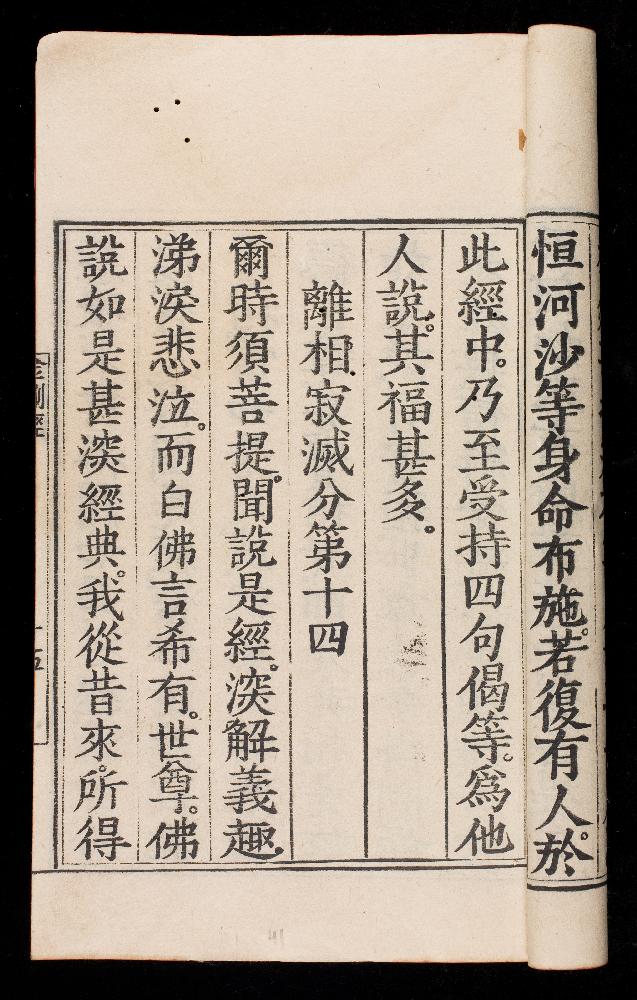 恒河沙等身命布施。若復有人。於
此經中。乃至受持四句偈等。爲他
人說。其福甚多。
離相寂滅分第十四
爾時須菩提。聞說是經。深解義趣。
涕淚悲泣。而白佛言希有。世尊。佛
說如是甚深經典。我從昔來。所得
金剛經
十五